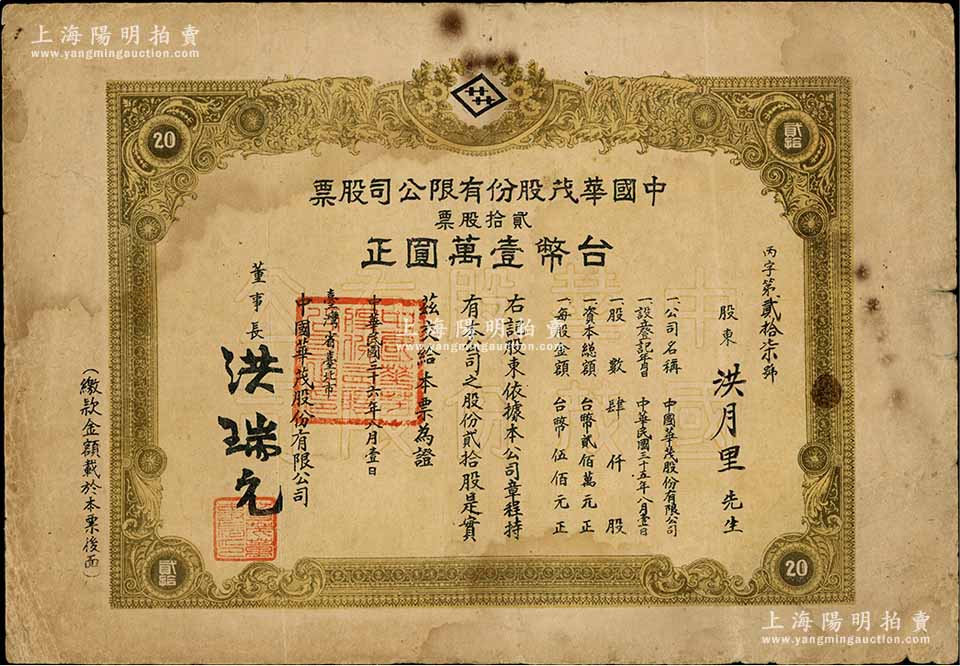 上海陽明拍賣
www.yangmingauction.com
20
貳拾
中國華茂股份有限公司股票
貳拾股票
台幣壹萬圓正
丙字第貳拾柒號
股東 洪月里 先生
一公司名稱 中國華茂股份有限公司
一設立登記年月日 中華民國三十五年八月壹日
一股數 肆仟股
一資本總額 台幣貳佰萬元正
一每股金額 台幣伍佰元正
右記股東依據本公司章程持
有本公司之股份貳拾股是實
茲交給本票為證
中華民國三十六年八月壹日
臺灣省臺北市
中國華茂股份有限公司
董事長 洪瑞元
(繳款金額載於本票後面)
上海陽明拍賣
www.yangmingauction.com
貳拾
20
上海陽明拍賣
www.yangmingauction.com